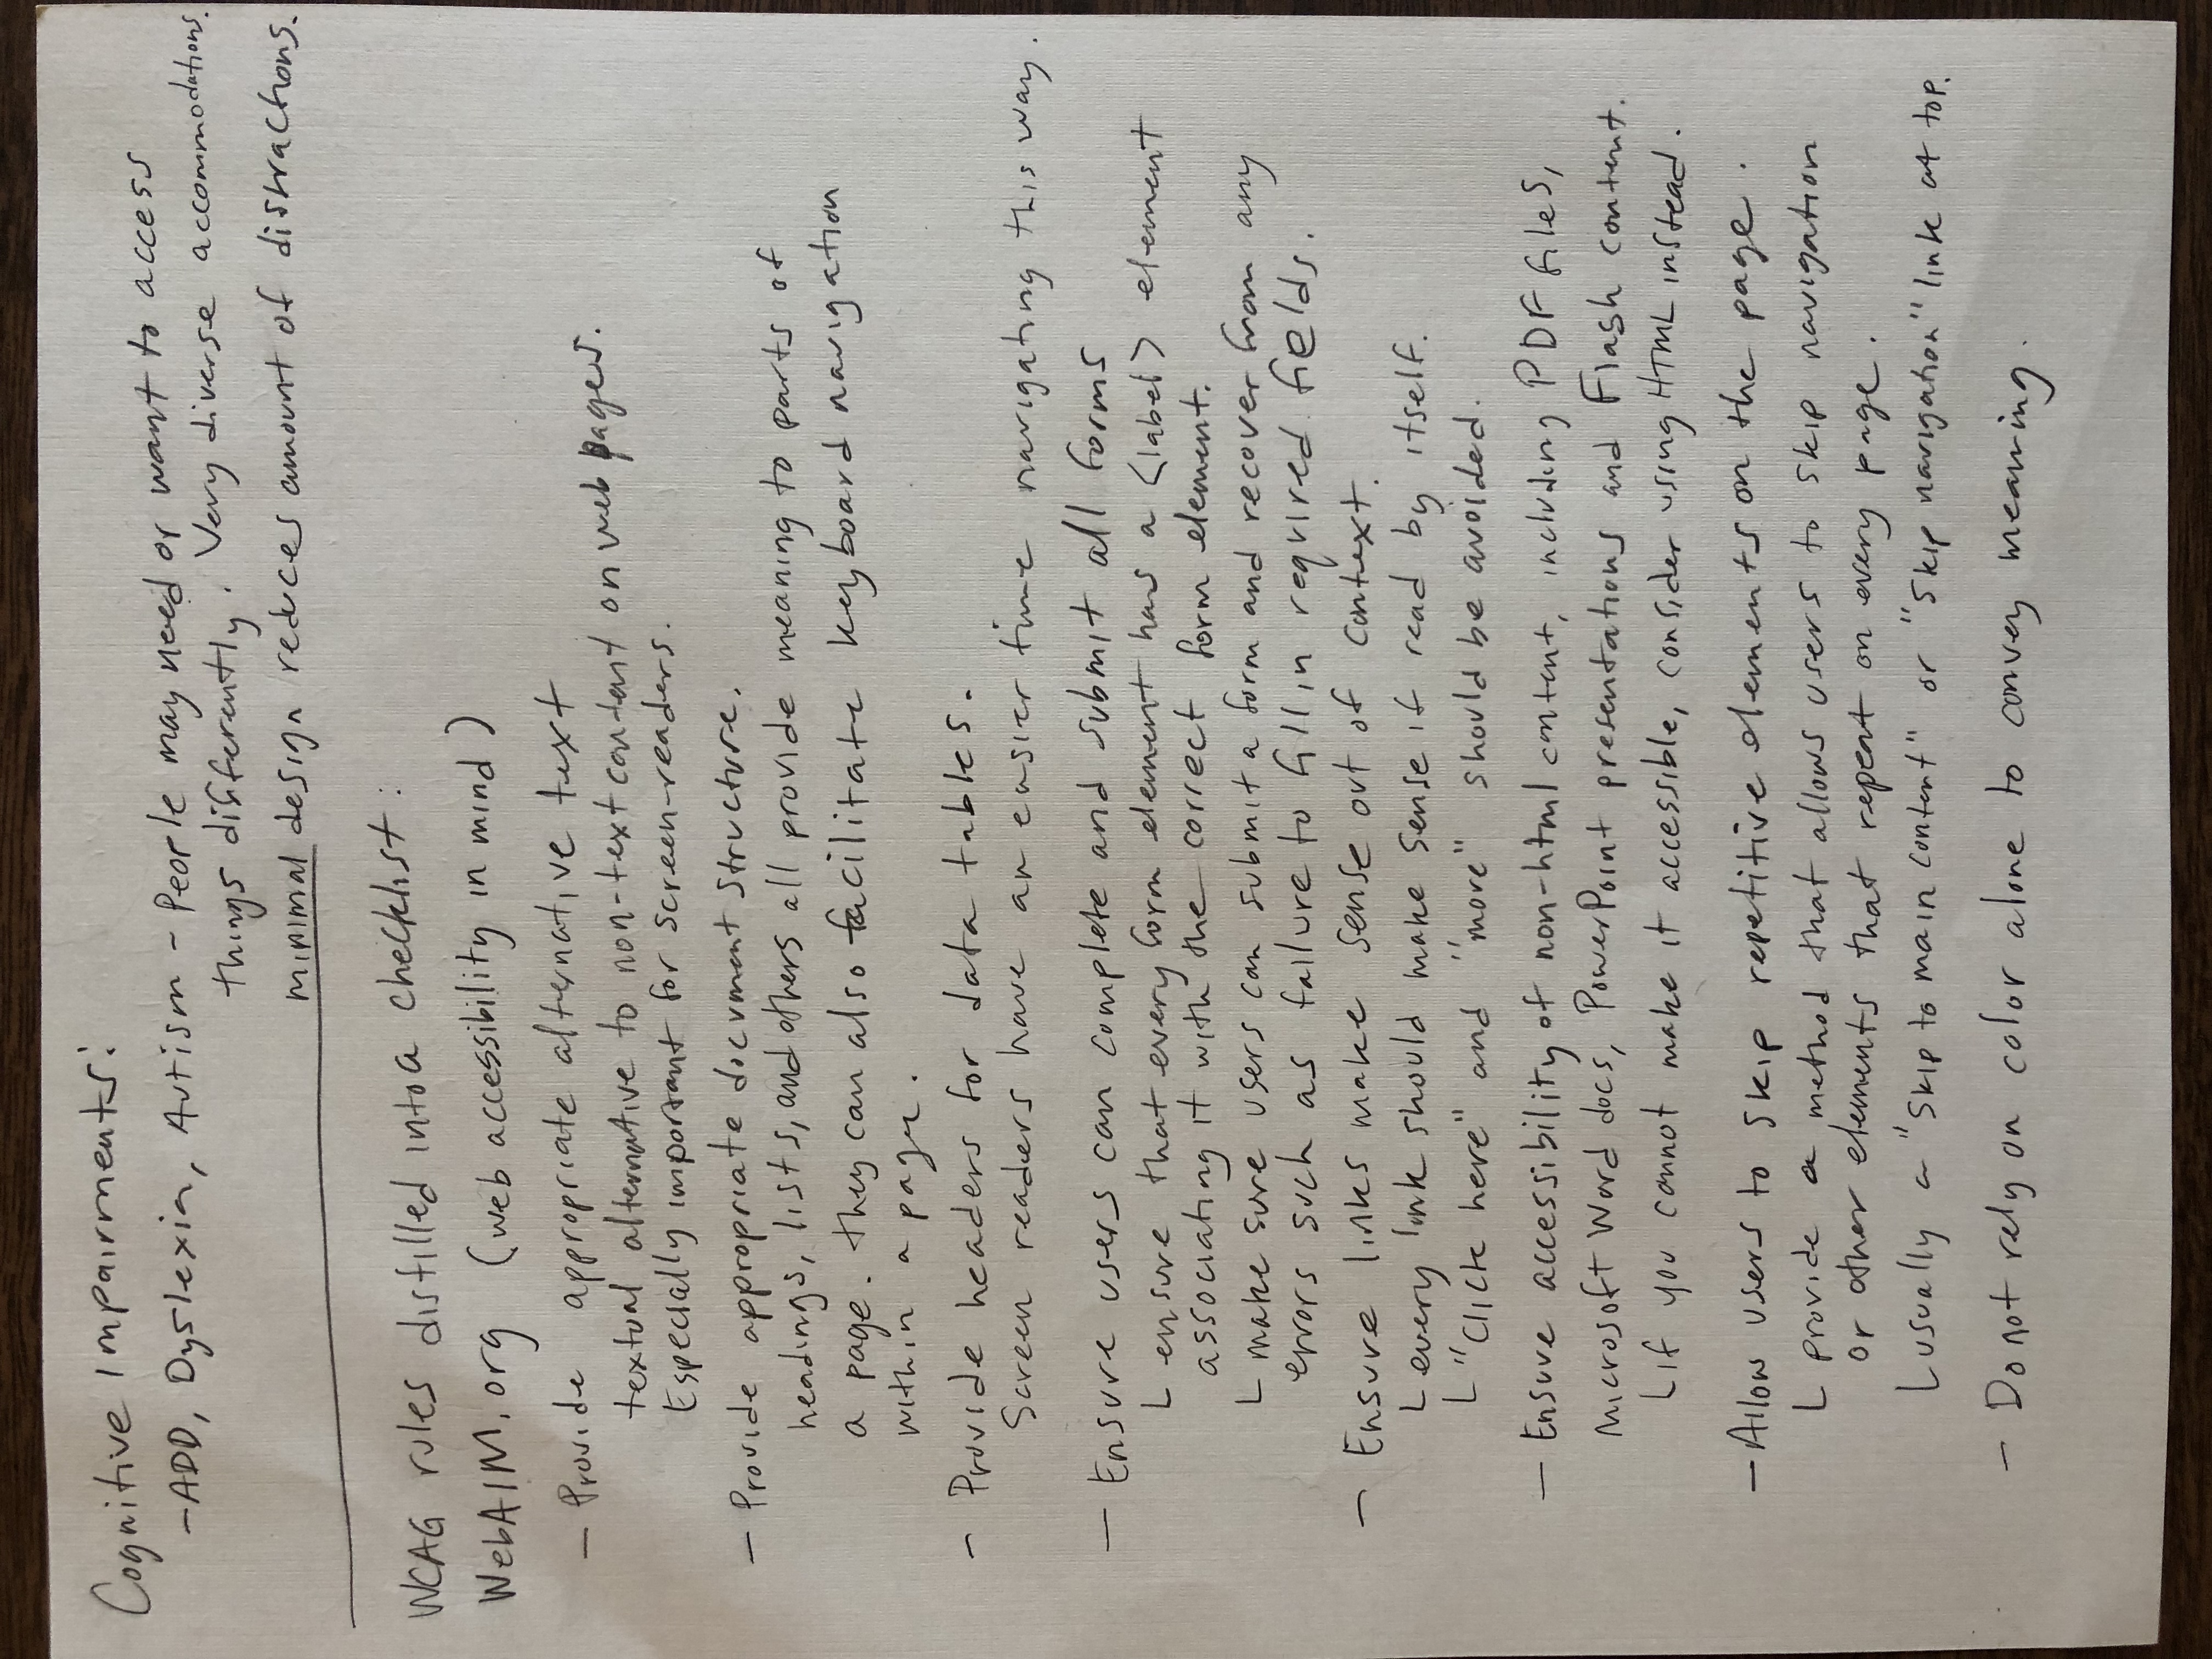 Cognitive Impairments:
-ADD, Dyslexia, Autism - People may need or want to access
things differently. Very diverse accommodations.
minimal design reduces amount of distractions.
WCAG rules distilled into a checklist:
WebAIM.org (web accessibility in mind)
- Provide appropriate alternative text
textual alternative to non-text content on web pages.
Especially important for screen-readers.
- Provide appropriate document structure.
headings, lists, and others all provide meaning to parts of
a page. they can also facilitate keyboard navigation
within a page.
- Provide headers for data tables.
Screen readers have an easier time navigating this way.
- Ensure users can complete and submit all forms
L ensure that every form element has a <label> element
associating it with the correct form element.
L make sure users can submit a form and recover from any
errors such as failure to fill in required fields.
- Ensure links make sense out of context.
L every link should make sense if read by itself.
L "click here" and "more" should be avoided.
- Ensure accessibility of non-html content, including PDF files,
Microsoft Word docs, PowerPoint presentations and Flash content.
L if you cannot make it accessible, consider using HTML instead.
- Allow users to skip repetitive elements on the page.
L provide a method that allows users to skip navigation
or other elements that repeat on every page.
L usually a "Skip to main content" or "Skip navigation" link at top.
- Do not rely on color alone to convey meaning.